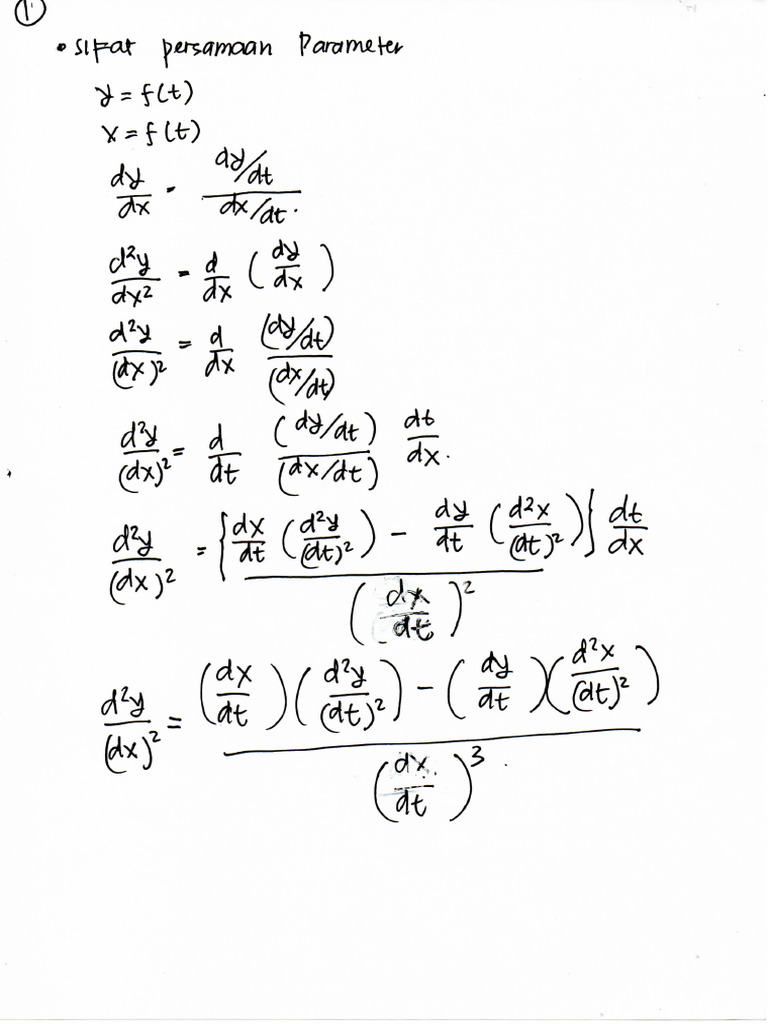 1.
• Sifat persamaan Parameter
y = f(t)
x = f(t)
dy/dx = (dy/dt)/(dx/dt).
d²y/dx² = d/dx (dy/dx)
d²y/(dx)² = d/dx (dy/dt)/(dx/dt)
d²y/(dx)² = d/dt (dy/dt)/(dx/dt) dt/dx.
d²y/(dx)² = {dx/dt (d²y/(dt)²) - dy/dt (d²x/(dt)²)} / (dx/dt)² dt/dx
d²y/(dx)² = (dx/dt)(d²y/(dt)²) - (dy/dt)(d²x/(dt)²) / (dx/dt)³.